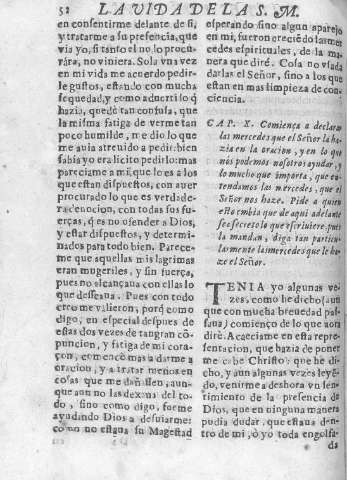 52 LA VIDA DE LA S. M.
en consentirme delante de si,
y tratarme a su presencia, que
via yo, si tanto el no lo procu-
rára, no viniera. Sola vna vez
en mi vida me acuerdo pedir-
le gustos, estando con mucha
sequedad, y como aduertí lo q̃
hazia, quedè tan confusa, que
la misma fatiga de verme tan
poco humilde, me dio lo que
me auia atreuido a pedir: bien
sabia yo era licito pedirlo: mas
pareciame a mi, que lo es a los
que estan dispuestos, con auer
procurado lo que es verdade-
ra deuocion, con todas sus fuer-
ças, q̃ es no ofender a Dios,
y estar dispuestos, y determi-
nados para todo bien. Parece-
me que aquellas mis lagrimas
eran mugeriles, y sin fuerça,
pues no alcançaua con ellas lo
que desseaua. Pues con todo
creo me valieron; porq̃ como
digo, en especial despues de
estas dos vezes de tan gran cõ-
puncion, y fatiga de mi cora-
çon, comencè mas a darme a
oracion, y a tratar menos en
cosas que me dañassen, aun-
que aun no las dexaua del to-
do, sino como digo, fueme
ayudando Dios a desuiarme:
como no estaua su Magestad
esperando sino algun aparejo
en mi, fueron creciẽdo las mer
cedes espirituales, de la ma-
nera que diré. Cosa no vsada
darlas el Señor, sino a los que
estan en mas limpieza de con-
ciencia.
CAP. X. Comiença a declarar
las mercedes que el Señor la ha-
zia en la oracion, y en lo que
nòs podemos nosotros ayudar, y
lo mucho que importa, que en-
tendamos las mercedes, que el
Señor nos haze. Pide a quien
esto embia que de aqui adelante
sea secreto lo que escriuiere, pues
la mandan, diga tan particu-
larmente las mercedes que le ha-
ze el Señor.
TENIA yo algunas ve-
zes, como he dicho (aun
que con mucha breuedad pas-
saua) comienço de lo que aora
diré. Acaeciame en esta repre-
sentacion, que hazia de poner
me cabe Christo, que he di-
cho, y aun algunas vezes leyẽ-
do, venirme a deshora vn sen-
timiento de la presencia de
Dios, que en ninguna manera
podia dudar, que estaua den-
tro de mi, ò yo toda engolfa-
da